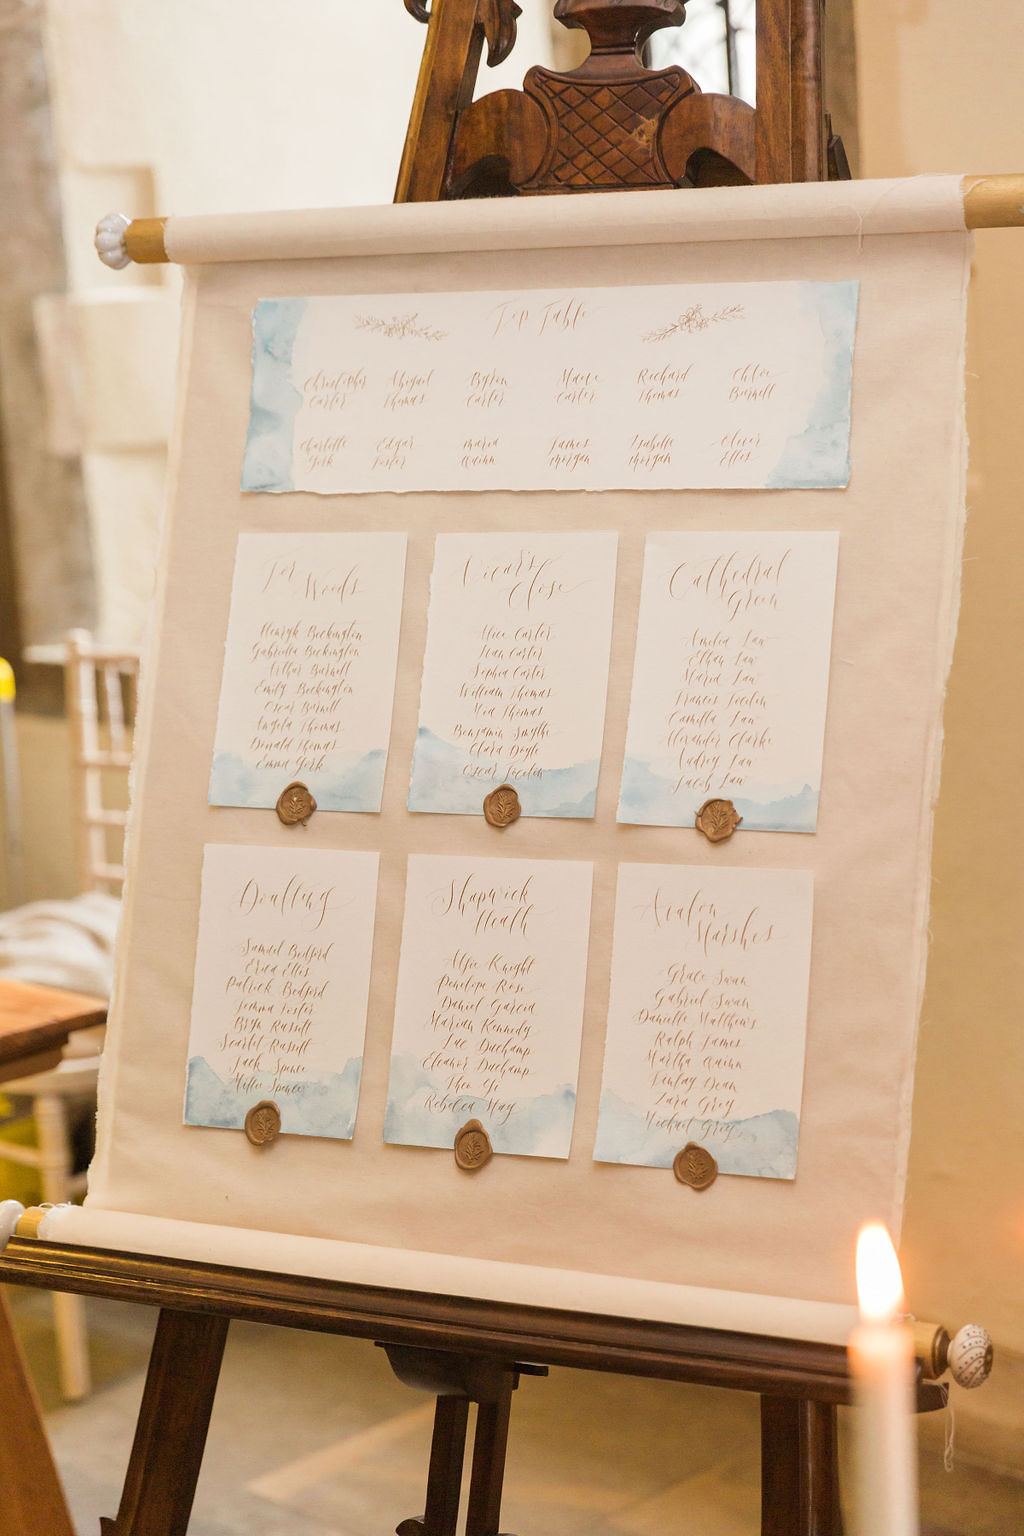 Top Table
Christopher Abigail Byron Maeve Richard Chloe
Carter Thomas Carter Carter Thomas Burnell
Charlotte Edgar Maria James Isabelle Oliver
York Foster Quinn Morgan Morgan Ellis
Tor Woods
Henryk Beckington
Gabriella Beckington
Arthur Burnell
Emily Beckington
Oscar Burnell
Angela Thomas
Donald Thomas
Emma York
Vicar's
Close
Alice Carter
Sean Carter
Sophia Carter
William Thomas
Mia Thomas
Benjamin Smythe
Clara Doyle
Oscar Jocelin
Cathedral
Green
Amilia Law
Ethan Law
Maria Law
Francis Jocelin
Camilla Law
Alexander Clarke
Audrey Law
Jacob Law
Doulting
Samuel Bedford
Erica Ellis
Patrick Bedford
Jemma Foster
Bryn Russell
Scarlet Russell
Jack Spence
Millie Spence
Shapwick
Heath
Alfie Knight
Penelope Rose
Daniel Garcia
Marian Kennedy
Luc Duchamp
Eleanor Duchamp
Theo Yi
Rebecca May
Avalon
Marshes
Grace Swan
Gabriel Swan
Danielle Matthews
Ralph James
Martha Quinn
Finlay Dean
Zara Grey
Michael Grey